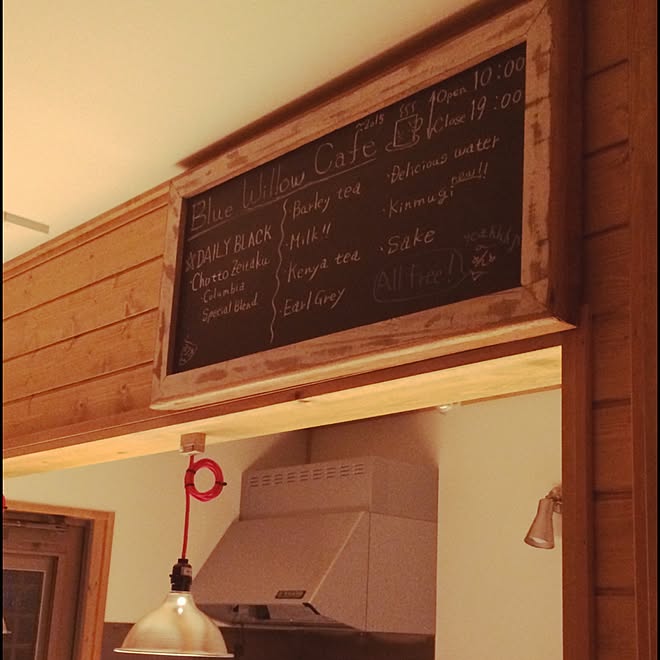 Blue Willow Cafe ~2015
Open 10:00
Close 19:00
☆DAILY BLACK
Chotto Zeitaku
・Columbia
Special Blend
・Barley tea
・Milk!!
・Kenya tea
・Earl Grey
・Delicious water
・Kinmugi new!!
・Sake
All free!